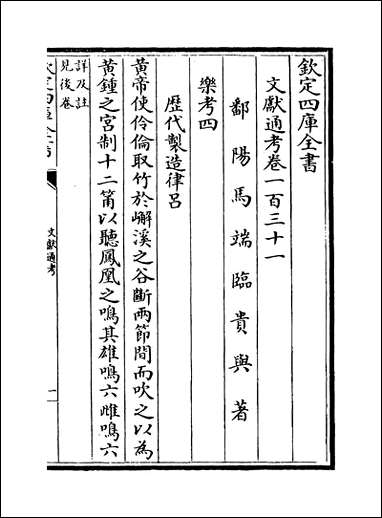 欽定四庫全書
文獻通考卷一百三十一
鄱陽馬端臨貴與著
樂考四
歴代製造律呂
黄帝使伶倫取竹於嶰溪之谷斷兩節間而吹之以為
黄鍾之宮制十二筩以聽鳳凰之鳴其雄鳴六雌鳴六
詳及註
見後卷
欽定四庫全書
文獻通考
一